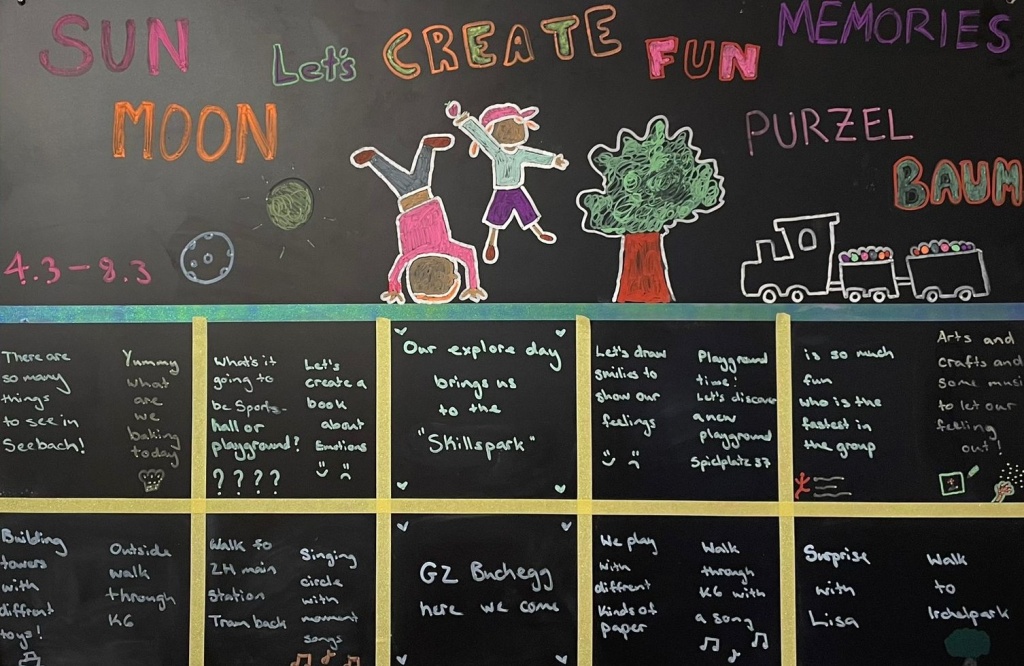 SUN
Let's
CREATE
FUN
MEMORIES
MOON
PURZEL
BAUM
4.3-8.3
There are
so many
things
to see in
Seebach!
Yummy
what
are
we
baking
today
What's it
going to
be Sports-
hall or
playground?
? ? ? ?
Let's
create a
book
about
Emotions
Our explore day
brings us
to the
"Skillspark"
Let's draw
smilies to
show our
feelings
Playground
time!
Let's discover
a new
playground
Spielplatz 37
is so much
fun
who is the
fastest in
the group
Arts and
crafts and
some musi
to let our
feeling
out!
Building
towers
with
diffrent
toys!
Outside
walk
through
K6
Walk to
ZH main
Station
Tram back
Singing
circle
with
moment
songs
GZ Buchegg
here we come
We play
with
diffrent
Kinds of
paper
Walk
through
K6 with
a song
Surprise
with
Lisa
Walk
to
Irchelpark